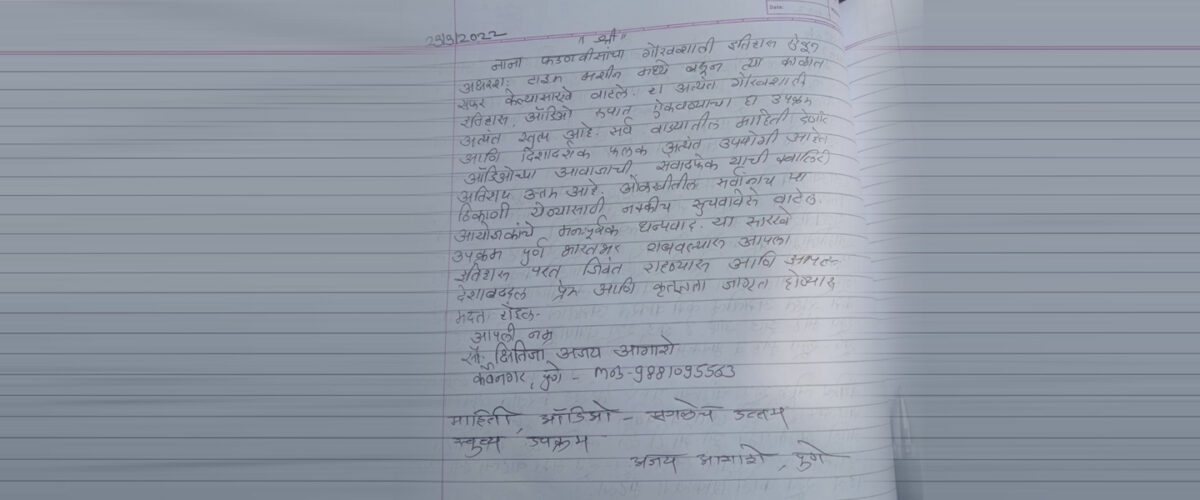 Date:
23/3/2022 ॥ श्री ॥
नाना फडणवीसांचा गौरवशाली इतिहास ऐकून
अक्षरशः टाइम मशीन मध्ये बसून त्या काळात
सफर केल्यासारखे वाटले. हा अत्यंत गौरवशाली
इतिहास, ऑडिओ रुपात ऐकवण्याचा हा उपक्रम
अत्यंत स्तुत्य आहे. सर्व वाड्यातील माहिती देणारे
आणि दिशादर्शक फलक अत्यंत उपयोगी आहेत
ऑडिओच्या आवाजाची संवादफेक याची क्वालिटी
अतिशय उत्तम आहे. ओळखीतील सर्वांनाच या
ठिकाणी येण्यासाठी नक्कीच सुचवावेसे वाटेल.
आयोजकांचे मनःपूर्वक धन्यवाद. या सारखे
उपक्रम पुर्ण भारतभर राबवल्यास आपला
इतिहास परत जिवंत राहण्यास आणि आपल्या
देशाबद्दल प्रेम आणि कृतज्ञता जागृत होण्यास
मदत होईल.
आपली नम्र
सौ. क्षितिजा अजय आगाशे
पुणे - mob-9881095563
माहिती, ऑडिओ - सगळेच उत्तम
स्तुत्य उपक्रम
अजय आगाशे, पुणे